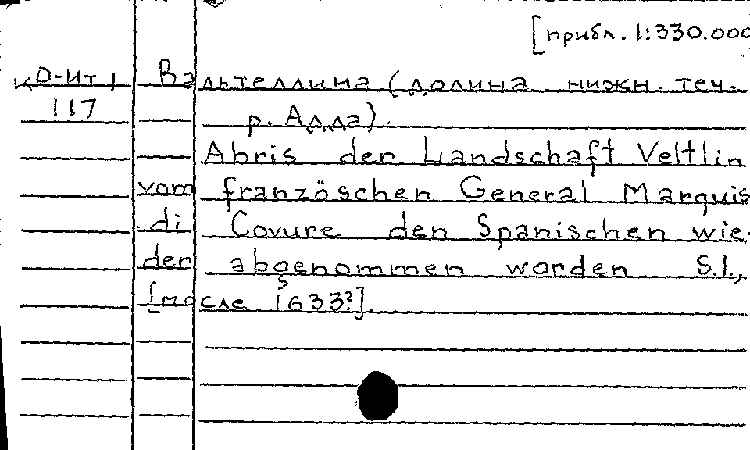 [прибл. 1:330.000
КО-Ит 1 Вальтеллина (долина нижн. теч.
117 р. Адда).
Abris der Landschaft Veltlin
vom französchen General Marquis
di Covure den Spanischen wie-
der abgenommen worden S.l.,
[после 1633?].